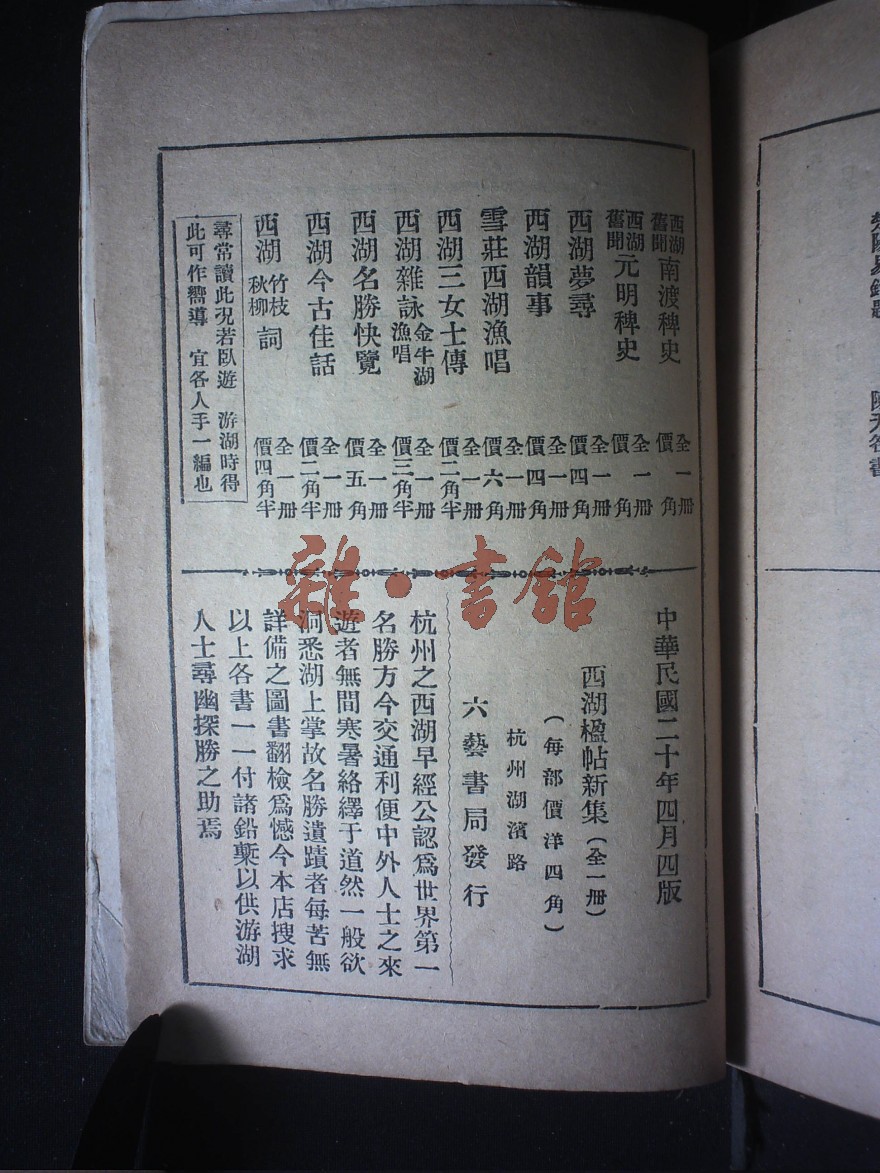 西湖舊聞南渡稗史 全一册 價一角
西湖舊聞元明稗史 全一册 價一角
西湖夢尋 全一册 價四角
西湖韻事 全一册 價四角
雪莊西湖漁唱 全一册 價六角
西湖三女士傳 全一册 價二角半
西湖雜詠金牛湖漁唱 全一册 價三角半
西湖名勝快覽 全一册 價五角
西湖今古佳話 全一册 價二角半
西湖竹枝秋柳詞 全一册 價四角半
尋常讀此況若臥遊 游湖時得
此可作嚮導 宜各人手一編也
中華民國二十年四月四版
西湖楹帖新集(全一册)
(每部價洋四角)
杭州湖濱路
六藝書局發行
杭州之西湖早經公認爲世界第一
名勝方今交通利便中外人士之來
遊者無間寒暑絡繹于道然一般欲
洞悉湖上掌故名勝遺蹟者每苦無
詳備之圖書翻檢爲憾今本店搜求
以上各書一一付諸鉛槧以供游湖
人士尋幽探勝之助焉
雜·書館